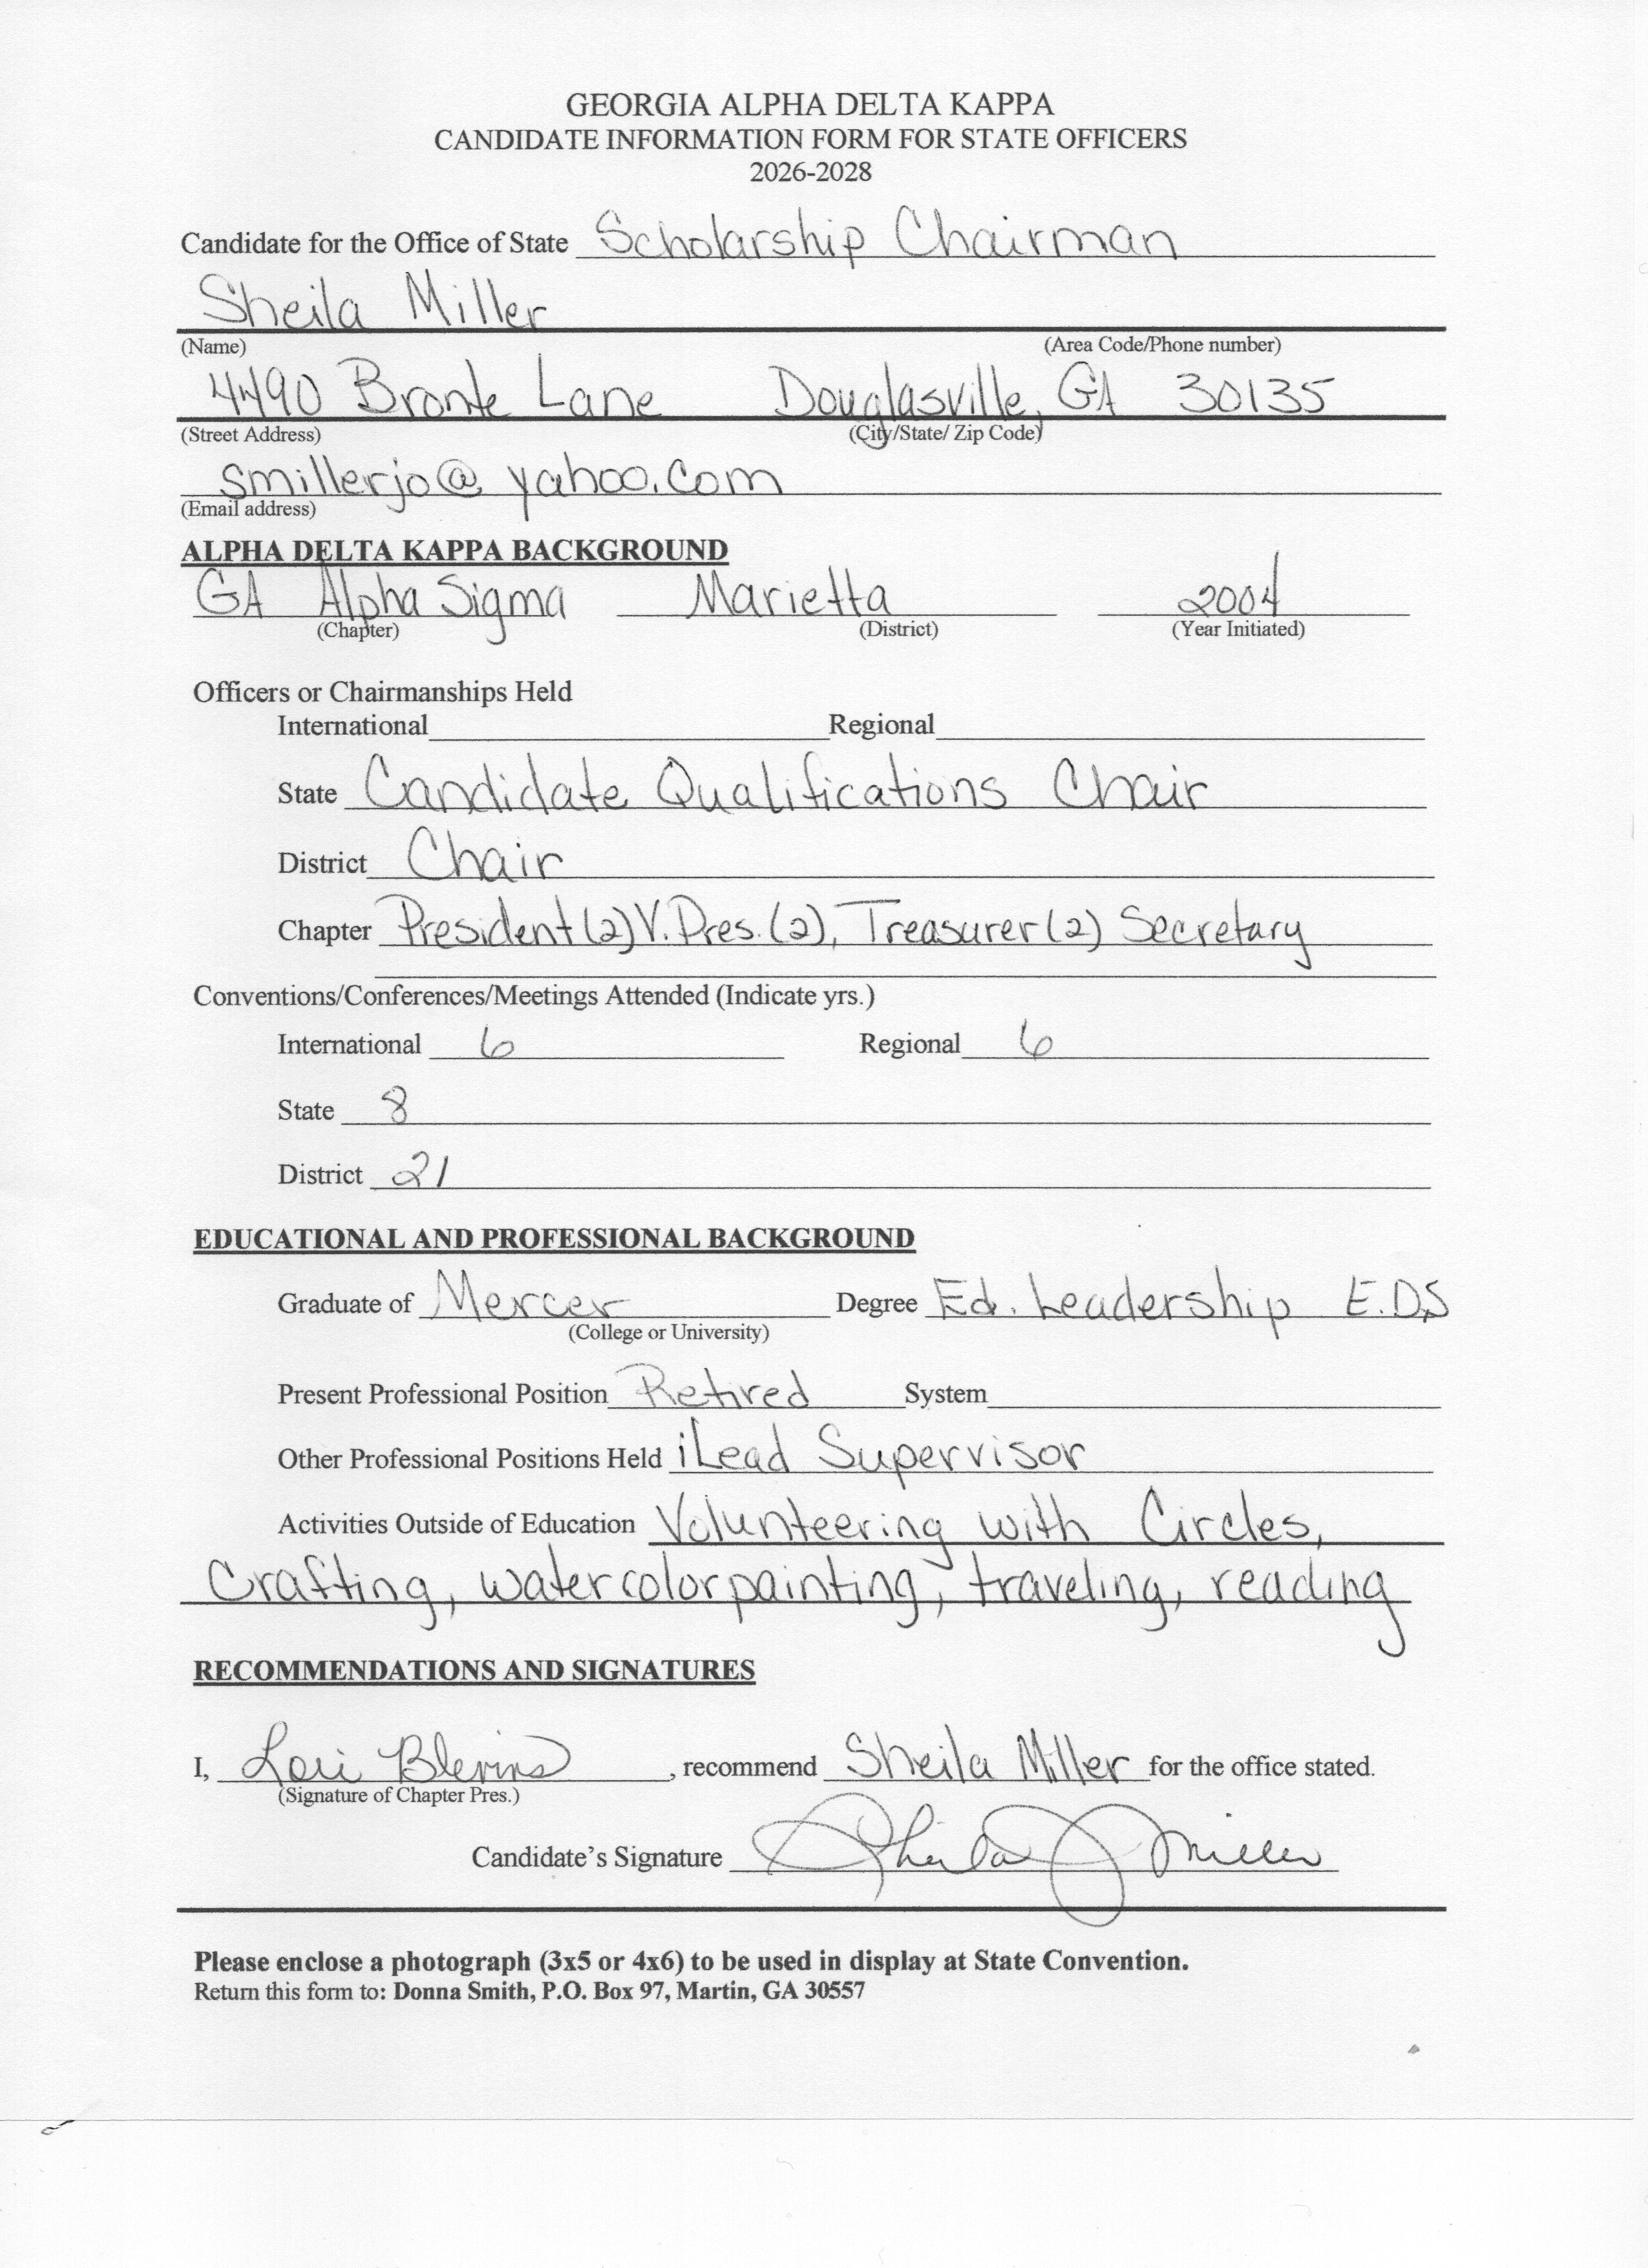 GEORGIA ALPHA DELTA KAPPA
CANDIDATE INFORMATION FORM FOR STATE OFFICERS
2026-2028
Candidate for the Office of State Scholarship Chairman
Sheila Miller
(Name) (Area Code/Phone number)
4490 Bronte Lane Douglasville, GA 30135
(Street Address) (City/State/ Zip Code)
smillerjo@yahoo.com
(Email address)
ALPHA DELTA KAPPA BACKGROUND
GA Alpha Sigma Marietta 2004
(Chapter) (District) (Year Initiated)
Officers or Chairmanships Held
International Regional
State Candidate Qualifications Chair
District Chair
Chapter President (2) V. Pres. (2), Treasurer (2) Secretary
Conventions/Conferences/Meetings Attended (Indicate yrs.)
International 6 Regional 6
State 8
District 21
EDUCATIONAL AND PROFESSIONAL BACKGROUND
Graduate of Mercer Degree Ed. Leadership E.D.S
(College or University)
Present Professional Position Retired System
Other Professional Positions Held iLead Supervisor
Activities Outside of Education Volunteering with Circles,
Crafting, watercolor painting, traveling, reading
RECOMMENDATIONS AND SIGNATURES
I, Lori Blevins, recommend Sheila Miller for the office stated.
(Signature of Chapter Pres.)
Candidate's Signature Sheila J Miller
Please enclose a photograph (3x5 or 4x6) to be used in display at State Convention.
Return this form to: Donna Smith, P.O. Box 97, Martin, GA 30557